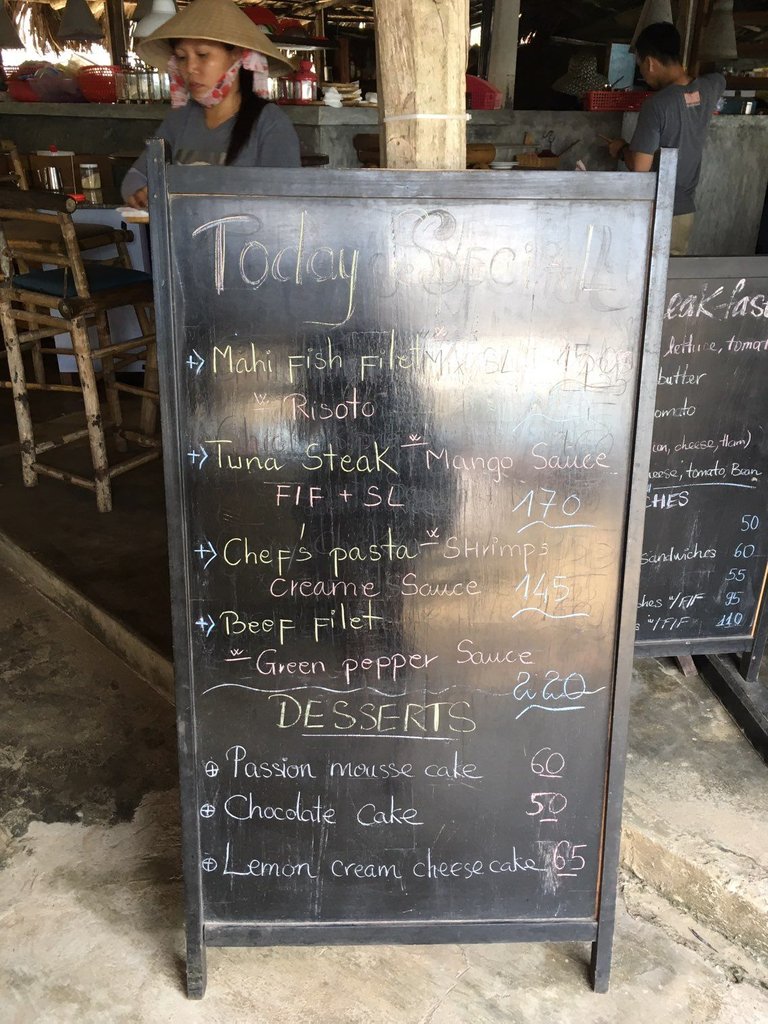 Today Special
+> Mahi Fish Filet Mix SL 150
w Risoto
+> Tuna Steak w Mango Sauce
F/F + SL 170
+> Chef's pasta w Shrimps
Creame Sauce 145
+> Beef Filet
w Green pepper Sauce
220
DESSERTS
⊕ Passion mousse cake 60
⊕ Chocolate cake 50
⊕ Lemon cream cheese cake 65
eakfas
lettuce, tomat
butter
omato
on, cheese, Ham)
eese, tomato, Bean
HES
50
sandwiches 60
55
ches w/F/F 95
s w/F/F 110